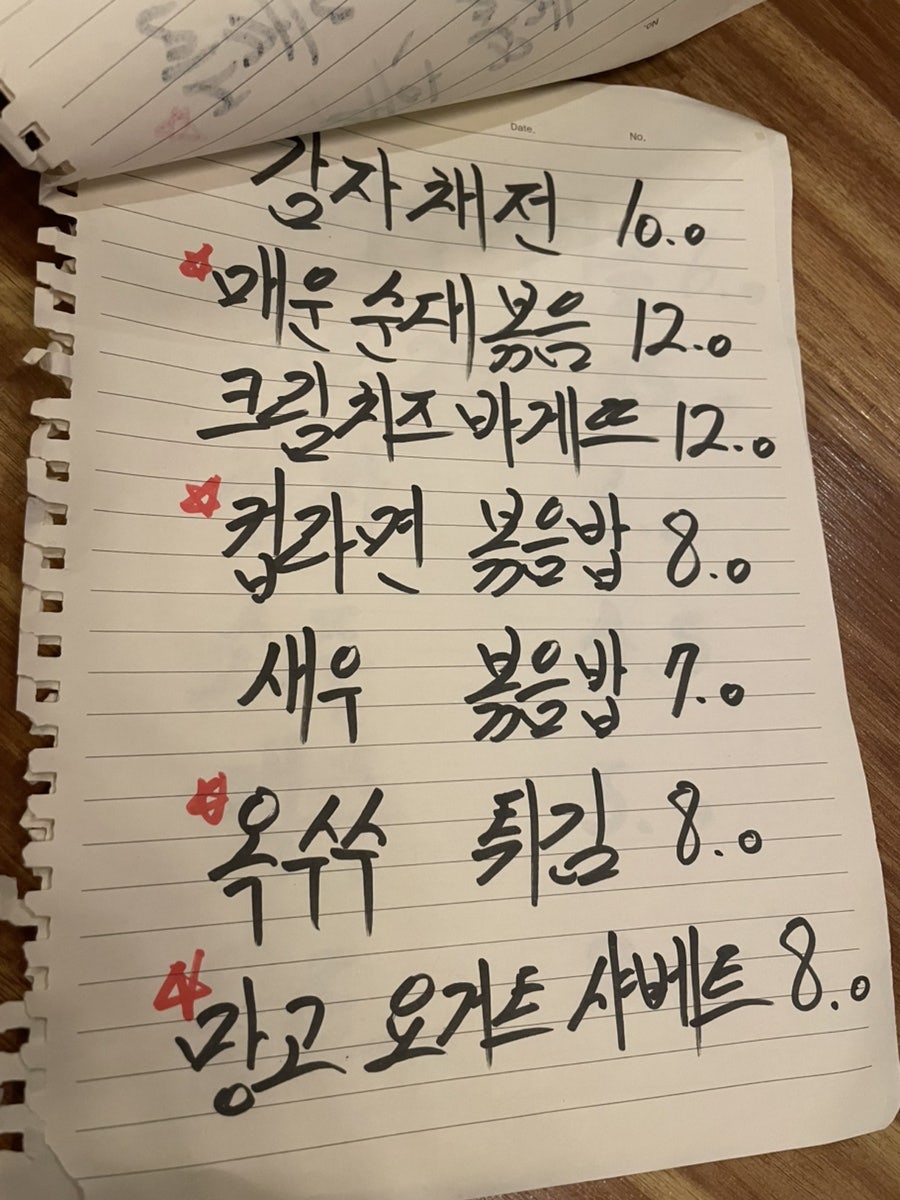 Date. No.
감자채전 10.0
매운 순대볶음 12.0
크림치즈 바게뜨 12.0
컵라면 볶음밥 8.0
새우 볶음밥 7.0
옥수수 튀김 8.0
망고 요거트 샤베트 8.0